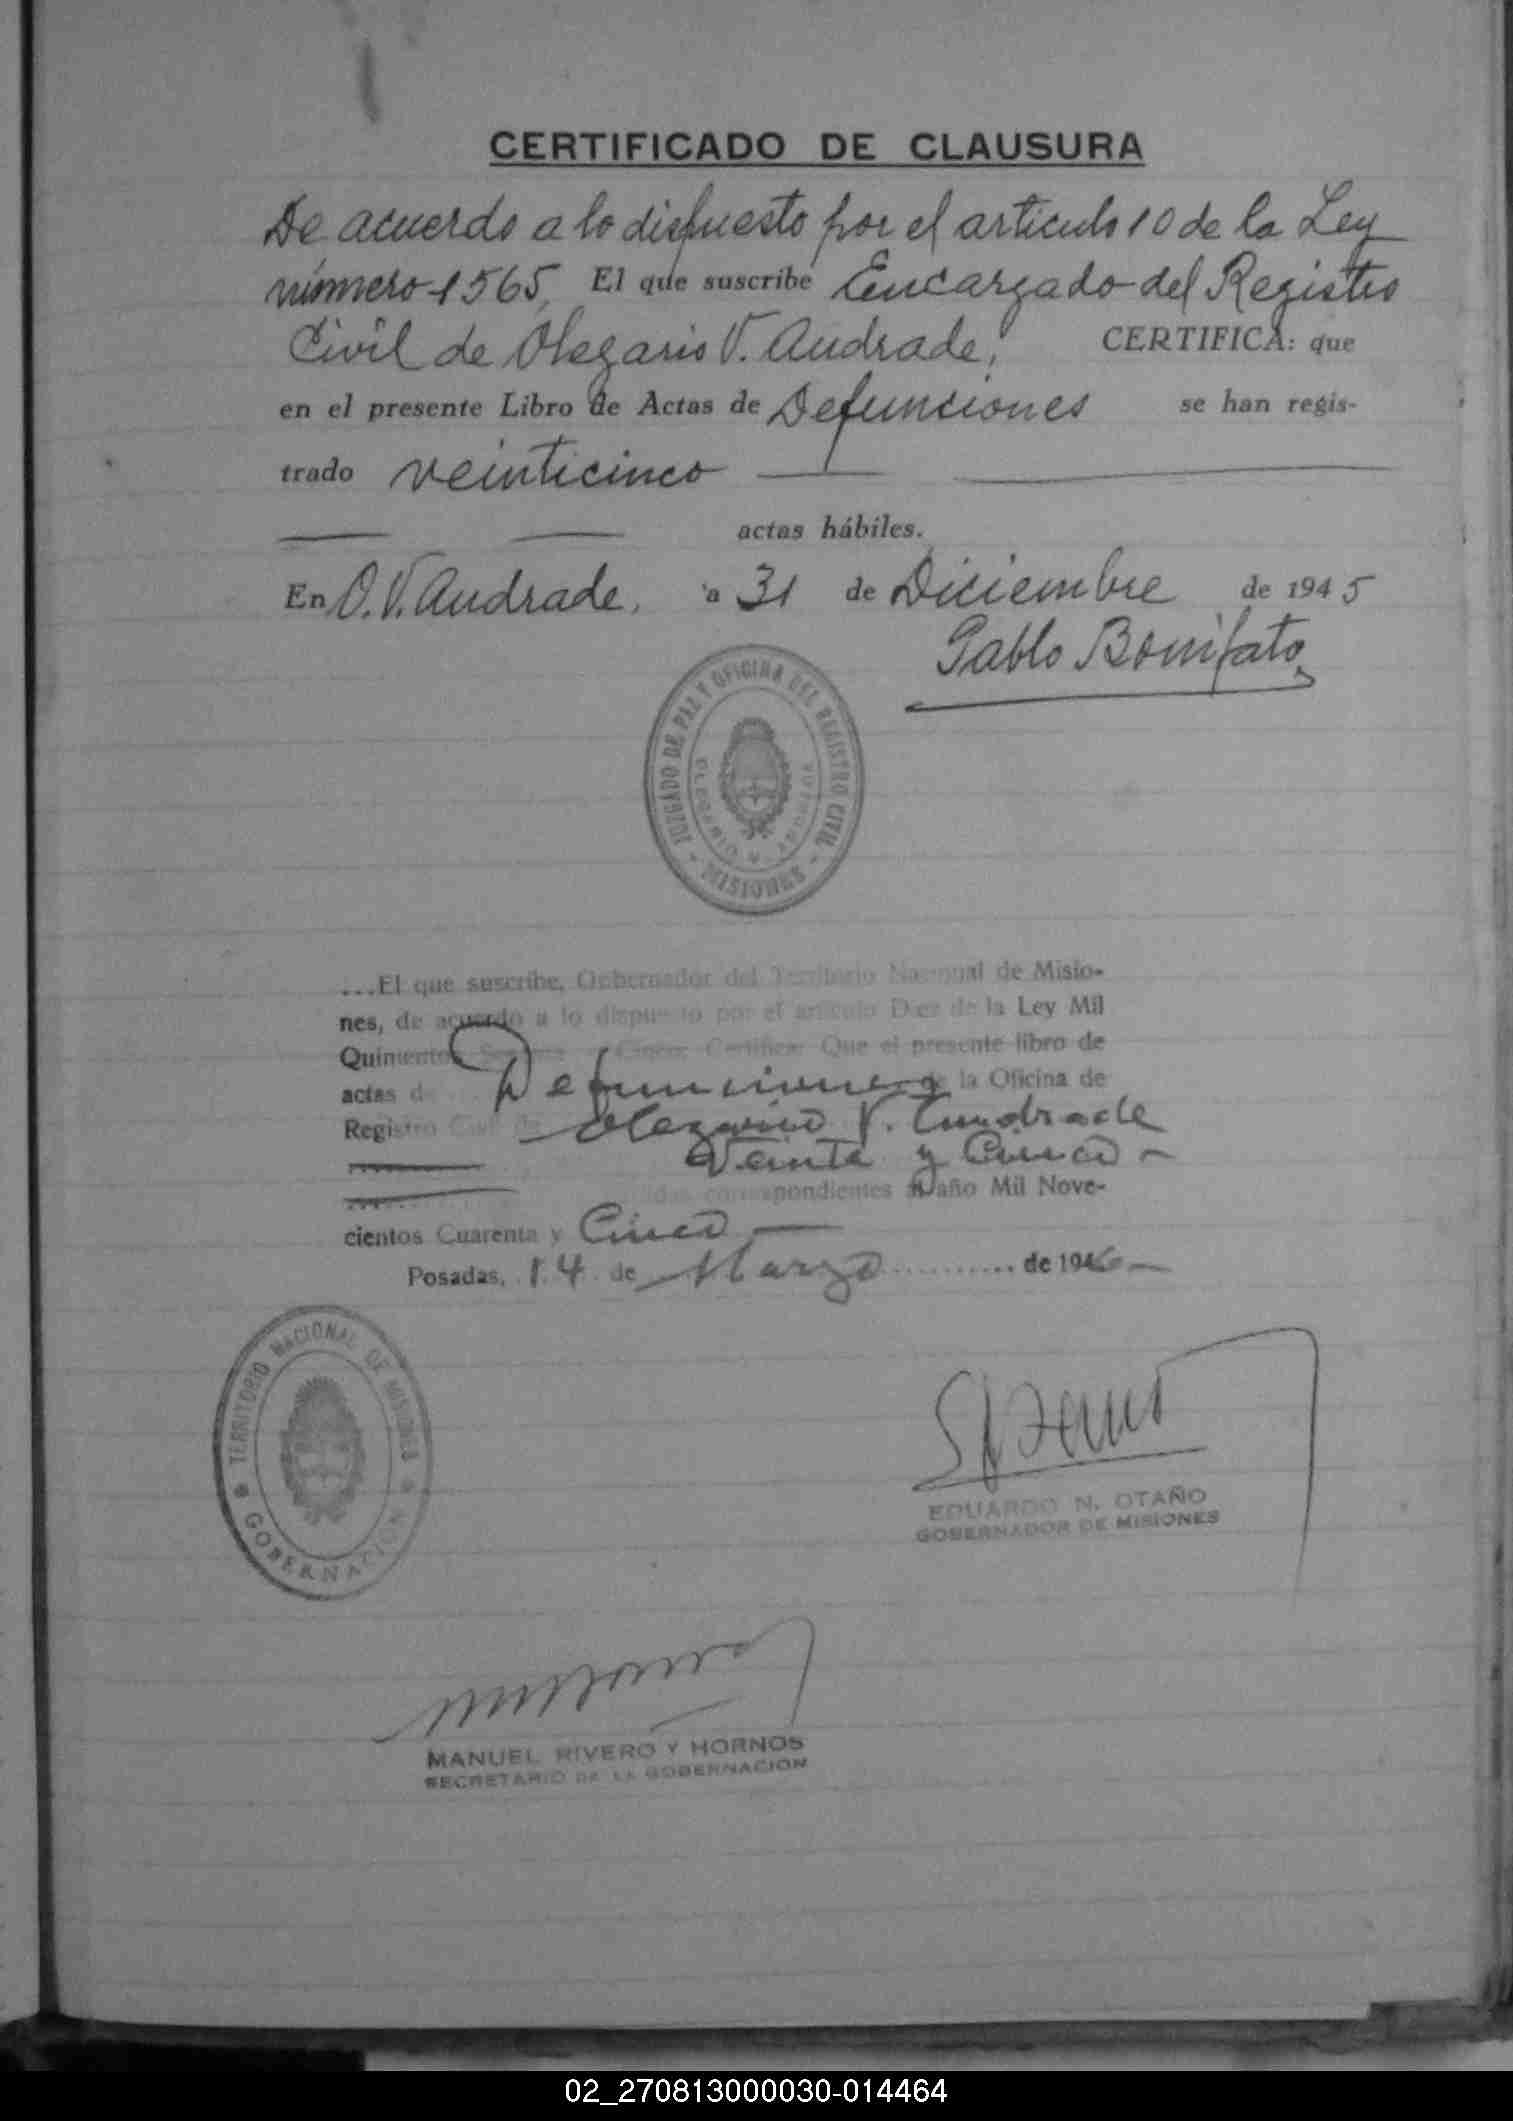 CERTIFICADO DE CLAUSURA
De acuerdo a lo dispuesto por el articulo 10 de la Ley
número 1565, El que suscribe Encargado del Registro
Civil de Olegario V. Andrade, CERTIFICA: que
en el presente Libro de Actas de Defunciones se han regis-
trado veinticinco
actas hábiles.
En O. V. Andrade, a 31 de Diciembre de 1945
Pablo Bonifato
JUZGADO DE PAZ Y OFICINA DEL REGISTRO CIVIL
OLEGARIO V. ANDRADE
- MISIONES -
...El que suscribe, Gobernador del Territorio Nacional de Misio-
nes, de acuerdo a lo dispuesto por el artículo Diez de la Ley Mil
Quinientos Sesenta y Cinco: Certifica: Que el presente libro de
actas de Defunciones de la Oficina de
Registro Civil de Olegario V. Andrade
Veinte y Cinco
correspondientes al año Mil Nove-
cientos Cuarenta y Cinco
Posadas, 14 de Marzo de 1946
TERRITORIO NACIONAL DE MISIONES
GOBERNACION
EDUARDO N. OTAÑO
GOBERNADOR DE MISIONES
MANUEL RIVERO Y HORNOS
SECRETARIO DE LA GOBERNACION
02_270813000030-014464